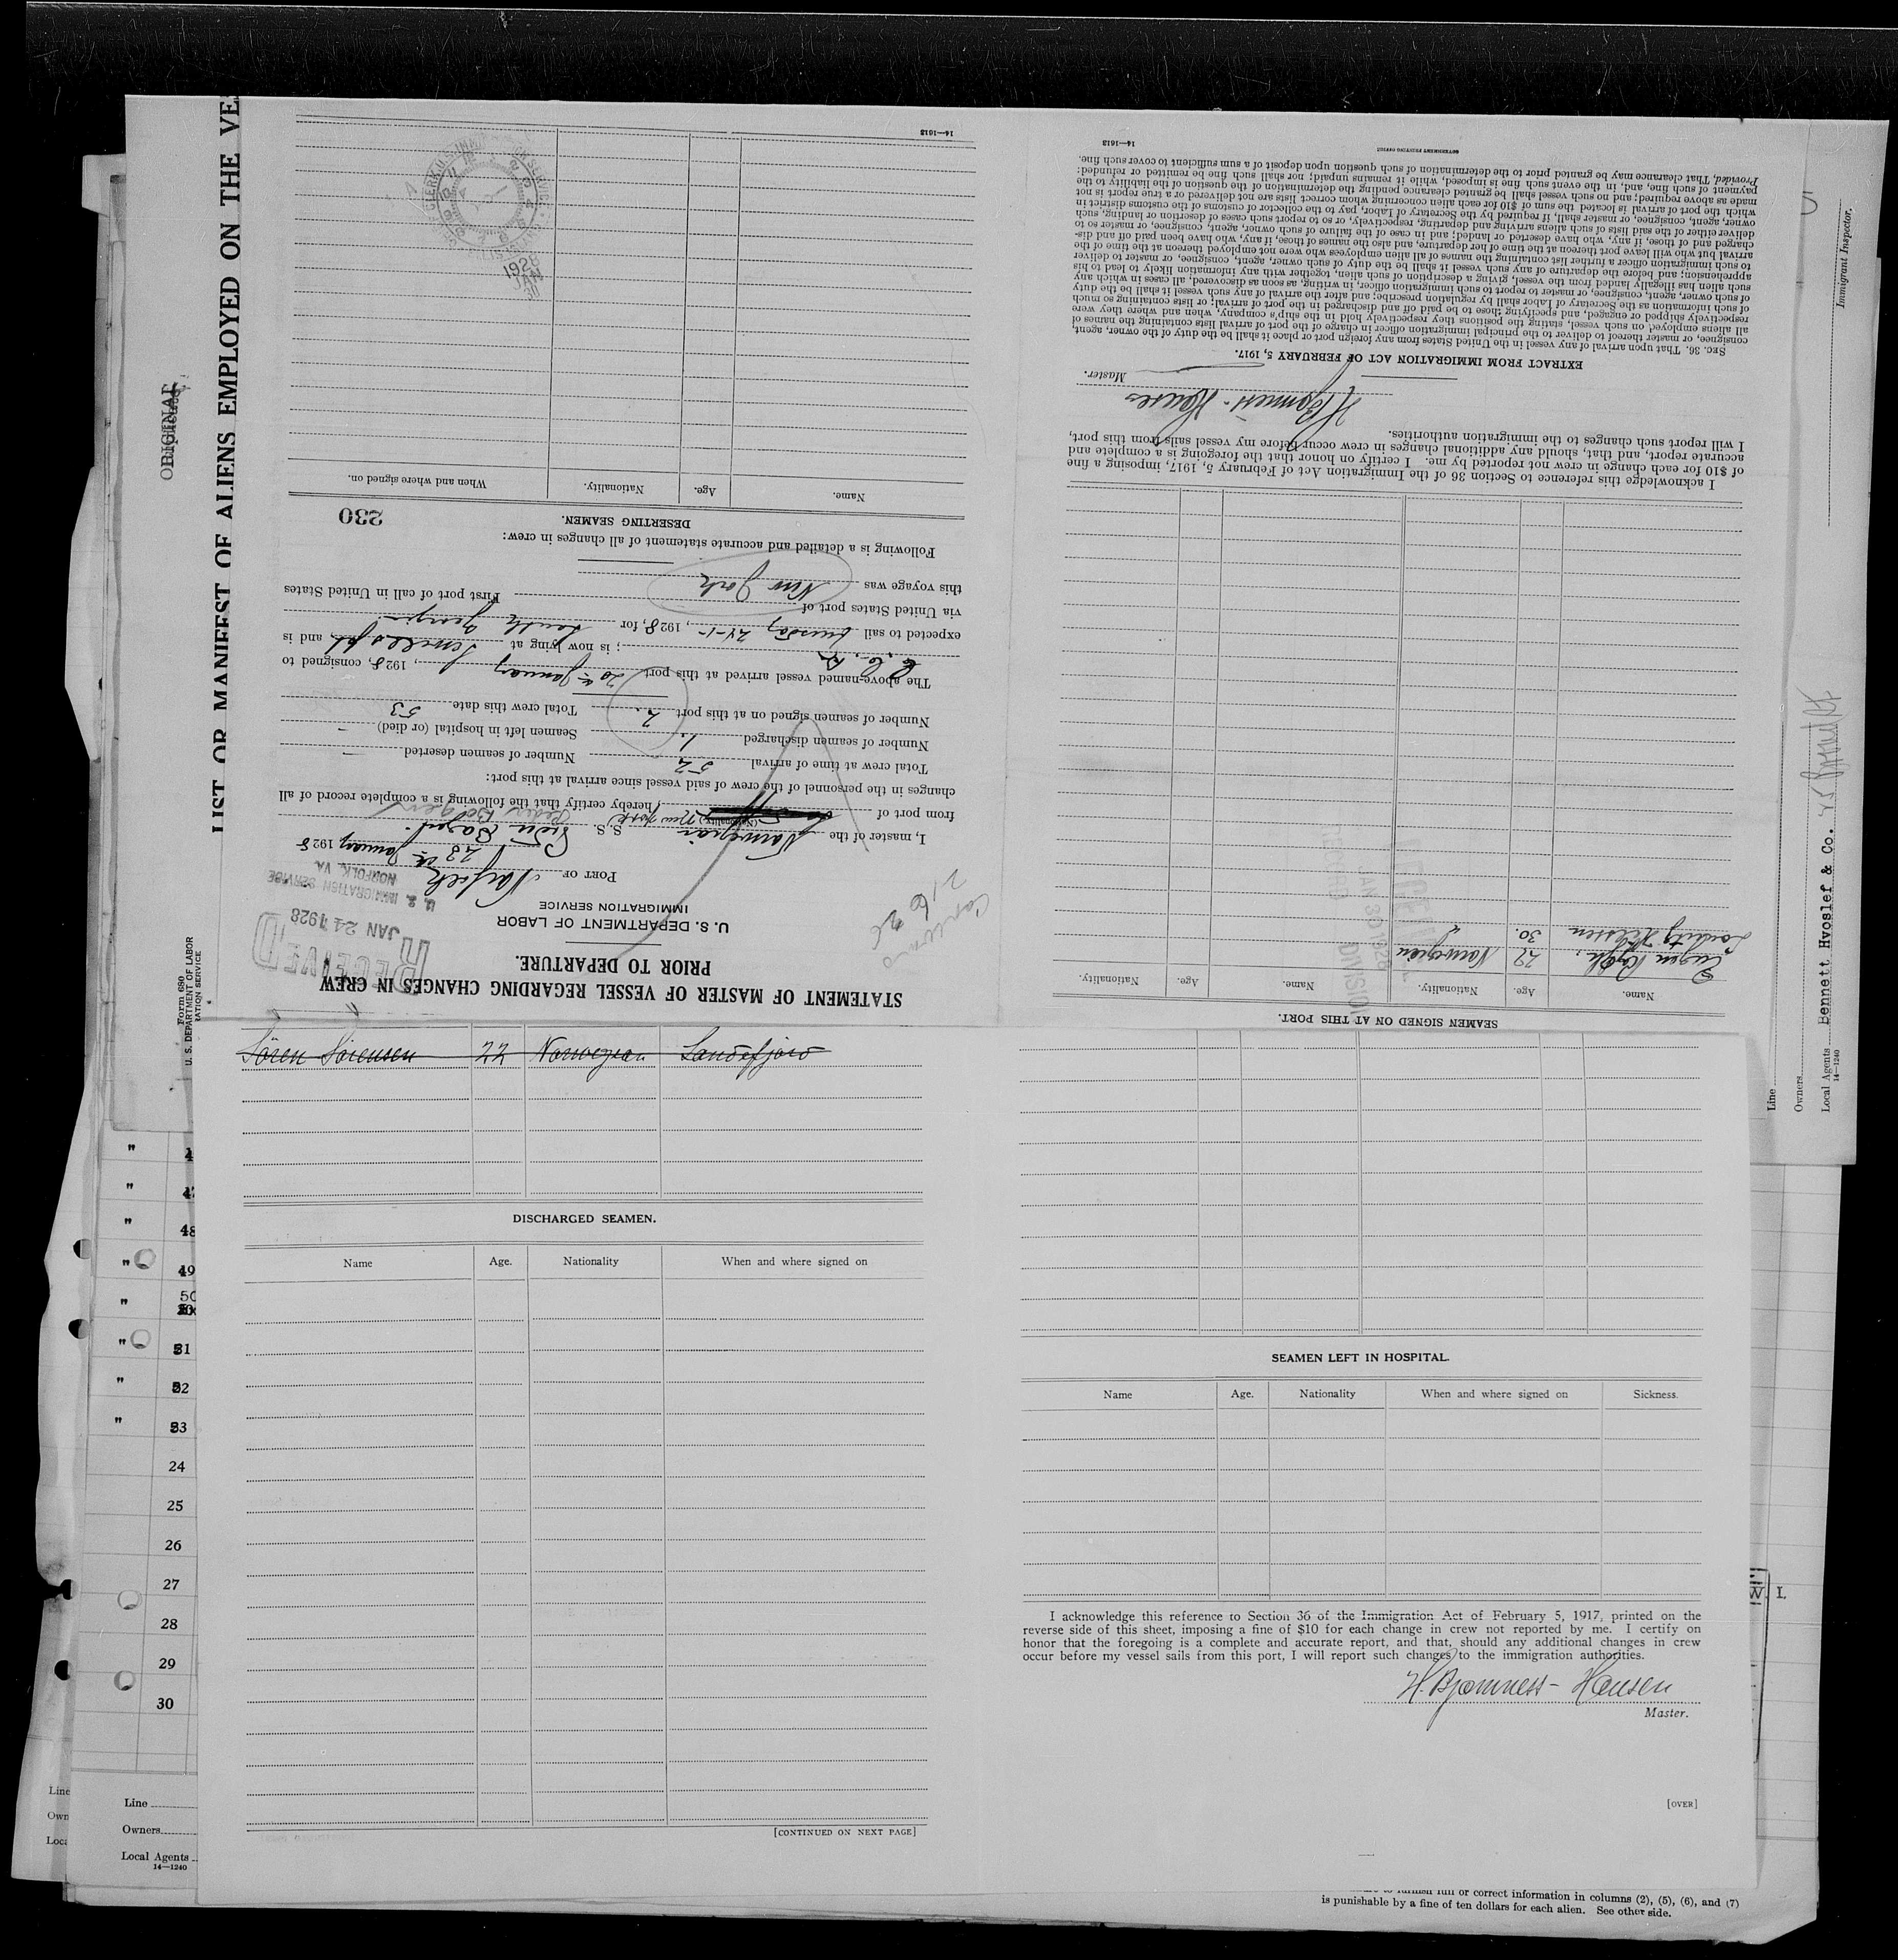 LIST OR MANIFEST OF ALIENS EMPLOYED ON THE VE
ORIGINAL
Form 680
U. S. DEPARTMENT OF LABOR
RATION SERVICE
STATEMENT OF MASTER OF VESSEL REGARDING CHANGES IN CREW
PRIOR TO DEPARTURE.
U. S. DEPARTMENT OF LABOR
IMMIGRATION SERVICE
RECEIVED
JAN 24 1928
U. S. IMMIGRATION SERVICE
NORFOLK, VA.
PORT OF Norfolk
23 January 1928
I, master of the Norwegian S. S. Peder Bogen
(Nationality) (New York)
from port of hereby certify that the following is a complete record of all
changes in the personnel of the crew of said vessel since arrival at this port:
Total crew at time of arrival 52 Number of seamen deserted —
Number of seamen discharged 1. Seamen left in hospital (or died) —
Number of seamen signed on at this port 2. Total crew this date 53
The above-named vessel arrived at this port 20th January, 1928, consigned to
; is now lying at Sewells pt, and is
expected to sail Tuesday 24-1-, 1928, for South Georgia
via United States port of First port of call in United States
this voyage was New York
Following is a detailed and accurate statement of all changes in crew:
230
DESERTING SEAMEN.
Name. Age. Nationality. When and where signed on.
1928
JAN
30
14—1613
SEAMEN SIGNED ON AT THIS PORT.
Name. Age. Nationality. Name. Age. Nationality.
Eugen 22 Norwegian
30. "
JAN 30 1928
RECORD DIVISION
I acknowledge this reference to Section 36 of the Immigration Act of February 5, 1917, imposing a fine
of $10 for each change in crew not reported by me. I certify on honor that the foregoing is a complete and
accurate report, and that, should any additional changes in crew occur before my vessel sails from this port,
I will report such changes to the immigration authorities.
H. Bjornness-Hansen
Master.
EXTRACT FROM IMMIGRATION ACT OF FEBRUARY 5, 1917.
SEC. 36. That upon arrival of any vessel in the United States from any foreign port or place it shall be the duty of the owner, agent,
consignee, or master thereof to deliver to the principal immigration officer in charge of the port of arrival lists containing the names of
all aliens employed on such vessel, stating the positions they respectively hold in the ship's company, when and where they were
respectively shipped or engaged, and specifying those to be paid off and discharged in the port of arrival; or lists containing so much
of such information as the Secretary of Labor shall by regulation prescribe; and after the arrival of any such vessel it shall be the duty
of such owner, agent, consignee, or master to report to such immigration officer, in writing, as soon as discovered, all cases in which any
such alien has illegally landed from the vessel, giving a description of such alien, together with any information likely to lead to his
apprehension; and before the departure of any such vessel it shall be the duty of such owner, agent, consignee, or master to deliver
to such immigration officer a further list containing the names of all alien employees who were not employed thereon at the time of the
arrival but who will leave port thereon at the time of her departure, and also the names of those, if any, who have been paid off and dis-
charged and of those, if any, who have deserted or landed; and in case of the failure of such owner, agent, consignee, or master so to
deliver either of the said lists of such aliens arriving and departing, respectively, or so to report such cases of desertion or landing, such
owner, agent, consignee, or master shall, if required by the Secretary of Labor, pay to the collector of customs of the customs district in
which the port of arrival is located the sum of $10 for each alien concerning whom correct lists are not delivered or a true report is not
made as above required; and no such vessel shall be granted clearance pending the determination of the question of the liability to the
payment of such fine, and, in the event such fine is imposed, while it remains unpaid; nor shall such fine be remitted or refunded:
Provided, That clearance may be granted prior to the determination of such question upon deposit of a sum sufficient to cover such fine.
14—1613
GOVERNMENT PRINTING OFFICE
Immigrant Inspector.
Line
Owners
Local Agents Bennett Hvoslef & Co.
14—1240
Sören Sörensen 22 Norwegian Sandefjord
DISCHARGED SEAMEN.
Name Age. Nationality When and where signed on
[CONTINUED ON NEXT PAGE]
SEAMEN LEFT IN HOSPITAL.
Name Age. Nationality When and where signed on Sickness.
I acknowledge this reference to Section 36 of the Immigration Act of February 5, 1917, printed on the
reverse side of this sheet, imposing a fine of $10 for each change in crew not reported by me. I certify on
honor that the foregoing is a complete and accurate report, and that, should any additional changes in crew
occur before my vessel sails from this port, I will report such changes to the immigration authorities.
H. Bjornness-Hansen
Master.
[OVER]
" 48
" 49
" 50
" 21
" 22
" 23
24
25
26
27
28
29
30
Line
Owners
Local Agents
14—1240
Line
Own
Loca
W. I.
full or correct information in columns (2), (5), (6), and (7)
is punishable by a fine of ten dollars for each alien. See other side.